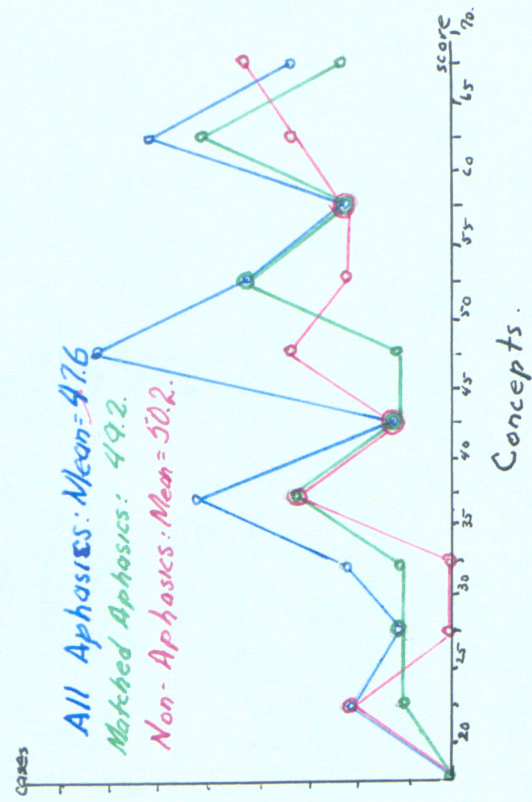 All Aphasics: Mean = 47.6
Matched Aphasics: 49.2.
Non-Aphasics: Mean = 50.2.
cases
20
25
30
35
40
45
50
55
60
65
70.
score
Concepts.